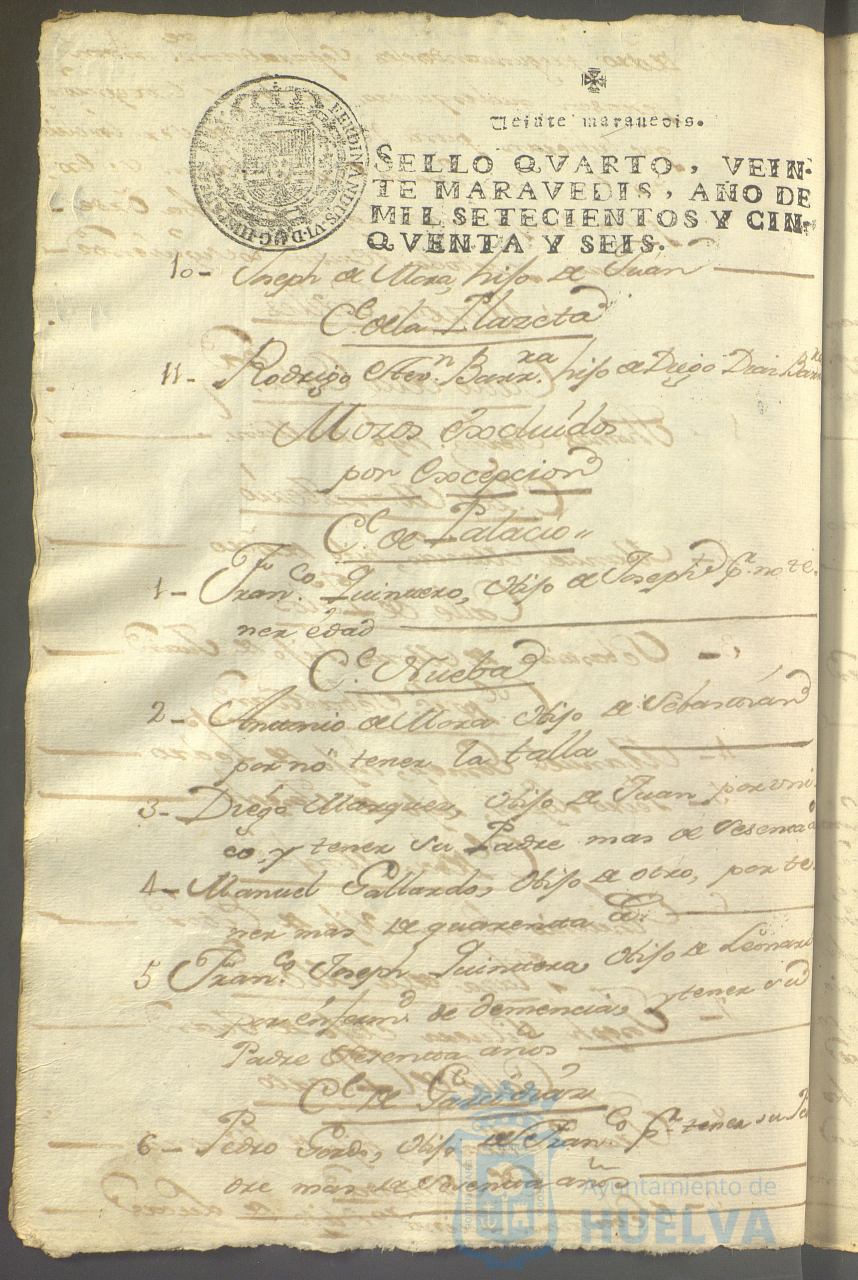 Veinte maravedis.
SELLO QVARTO, VEIN-
TE MARAVEDIS, AÑO DE
MIL SETECIENTOS Y CIN-
QVENTA Y SEIS.
FERDINANDUS·VI·D·G·HISPANIAR
10- Joseph de Mora, hijo de Juan
C.e de la Plazeta
11- Rodrigo Barr.xa hijo de Diego Diaz
Mozos excluídos
por Excepcion
C.e de Palacio
1- Fran.co Quintero, Hijo de Joseph p.r no te-
ner édad
C.e Nueba
2- Antonio de Mora Hijo de Sebastián
por no tener la talla
3- Diégo Marquez, Hijo de Juan por vni-
co, y tener su Padre mas de Sesenta
4- Manuel Gallardo, Hijo de otro, por te-
ner mas de quarenta
5 Fran.co Joseph Quintero, Hijo de Leonar
por énferm.d de demencia, y tener su
Padre Sesenta años
C.e de
6- Pedro Gordo, Hijo de Fran.co p.r tener su Pa
dre mas de Sesenta años
Ayuntamiento de
HUELVA